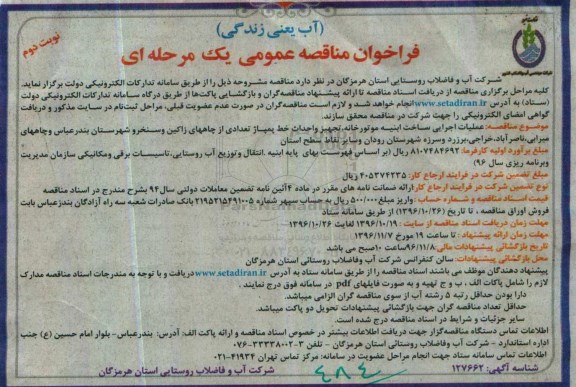 (آب یعنی زندگی)
نوبت دوم
فراخوان مناقصه عمومی یک مرحله ای
شرکت آب و فاضلاب روستایی استان هرمزگان در نظر دارد مناقصه مشروحه ذیل را از طریق سامانه تدارکات الکترونیکی دولت برگزار نماید.
کلیه مراحل برگزاری مناقصه از دریافت اسناد مناقصه تا ارائه پیشنهاد مناقصه‌گران و بازگشایی پاکت‌ها از طریق درگاه سامانه تدارکات الکترونیکی دولت
(ستاد) به آدرس www.setadiran.ir انجام خواهد شد و لازم است مناقصه‌گران در صورت عدم عضویت قبلی، مراحل ثبت‌نام در سایت مذکور و دریافت
گواهی امضای الکترونیکی را جهت شرکت در مناقصه محقق سازند.
موضوع مناقصه: عملیات اجرایی ساخت ابنیه موتورخانه، تجهیز واحداث خط پمپاژ تعدادی از چاههای زاکین وسنخرو شهرستان بندرعباس وچاههای
میرابی، ناصرآباد، خراجی، برزرد وسرزه شهرستان رودان وسایر نقاط سطح استان
مبلغ برآورد اولیه کارفرما: ۸۱۰۷۴۸۴۶۹۲ ریال (بر اساس فهرست بهای پایه ابنیه، انتقال وتوزیع آب روستایی، تاسیسات برقی ومکانیکی سازمان مدیریت
وبرنامه ریزی سال ۹۶)
مبلغ تضمین شرکت در فرایند ارجاع کار: ۴۰۵۳۷۴۲۳۵ ریال
نوع تضمین شرکت در فرایند ارجاع کار: ارائه ضمانت نامه های مقرر در ماده ۴ آئین نامه تضمین معاملات دولتی سال ۹۴ بشرح مندرج در اسناد مناقصه
قیمت اسناد مناقصه و شماره حساب: واریز مبلغ ۵۰۰/۰۰۰ ریال به حساب سپهر شماره ۲۱۹۵۲۱۵۴۹۱۰۰۵ بانک صادرات شعبه سه راه آزادگان بندرعباس بابت
فروش اوراق مناقصه، تا تاریخ (۱۳۹۶/۱۰/۲۶) از طریق سامانه ستاد
مهلت زمانی دریافت اسناد مناقصه از سایت: ۱۳۹۶/۱۰/۱۹ لغایت ۱۳۹۶/۱۰/۲۶
مهلت زمانی ارائه پیشنهاد: تا ساعت ۱۹ مورخ ۱۳۹۶/۱۱/۷
تاریخ بازگشائی پیشنهادات مالی: ۹۶/۱۱/۸ ساعت ۱۰ صبح می باشد
محل بازگشائی پیشنهادات: سالن کنفرانس شرکت آب وفاضلاب روستائی استان هرمزگان
پیشنهاد دهندگان موظف می باشند اسناد مناقصه را از طریق سامانه ستاد به آدرس www.setadiran.ir دریافت و با توجه به مندرجات اسناد مناقصه مدارک
لازم را شامل پاکات الف، ب و ج تهیه و به صورت فایلهای pdf در سامانه فوق درج نمایند.
دارا بودن حداقل رتبه ۵ رشته آب از سوی مناقصه گران الزامی میباشد.
حداقل تعداد مناقصه گران جهت بازگشائی پیشنهادات تحویل دو پاکت میباشد.
سایر جزئیات و شرایط در اسناد مناقصه درج شده است.
اطلاعات تماس دستگاه مناقصه گزار جهت دریافت اطلاعات بیشتر در خصوص اسناد مناقصه و ارائه پاکت الف: آدرس: بندرعباس- بلوار امام حسین (ع) جنب
اداره استاندارد - شرکت آب وفاضلاب روستائی استان هرمزگان - تلفن ۳-۳۳۳۳۸۰۰۲-۰۷۶
اطلاعات تماس سامانه ستاد جهت انجام مراحل عضویت در سامانه: مرکز تماس تهران ۴۱۹۳۴-۰۲۱
شرکت آب و فاضلاب روستایی استان هرمزگان
شناسه آگهی: ۱۲۷۶۶۲